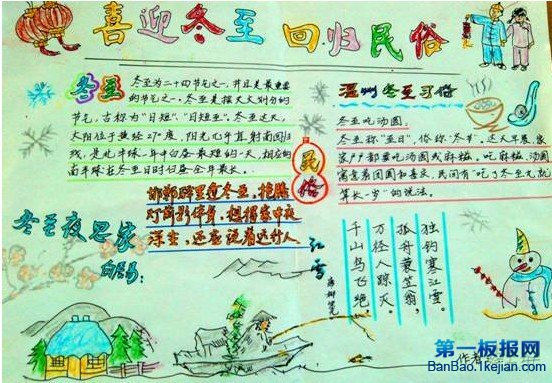 喜迎冬至 回归民俗
冬至
冬至为二十四节气之一，并且是最重要
的节气之一。冬至是按天文划分的
节气，古称为"日短"、"日短至"。冬至这天，
太阳位于黄经270度，阳光几乎直射南回归
线，是北半球一年中白昼最短的一天，相应的
南半球在冬至日时白昼全年最长。
温州冬至习俗
冬至吃汤圆
冬至称"亚日"，俗称"冬节"，这天早晨，家
家户户都要吃汤圆或麻糍，吃麻糍、汤圆
寓意着团圆和喜庆，民间有"吃了冬至丸就
年长一岁"的说法。
民俗
冬至夜思家
白居易
邯郸驿里逢冬至，抱膝
灯前影伴身。想得家中夜
深坐，还应说着远行人。
江雪
柳宗元
千山鸟飞绝
万径人踪灭。
孤舟蓑笠翁，
独钓寒江雪。
作者
第一板报网
BanBao.1kejian.com